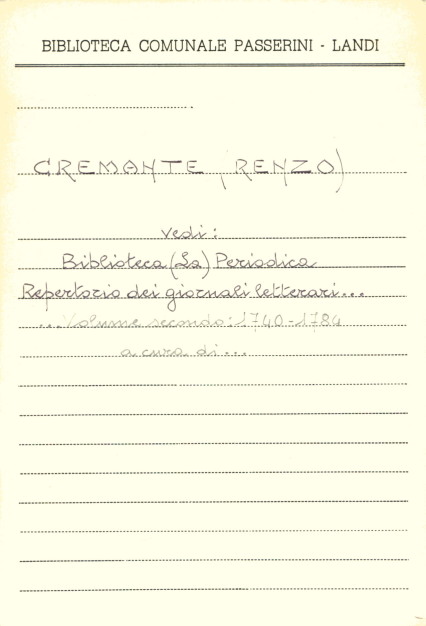 BIBLIOTECA COMUNALE PASSERINI - LANDI
CREMANTE (RENZO)
vedi:
Biblioteca (La) Periodica
Repertorio dei giornali letterari...
...Volume secondo: 1740-1784
a cura di...